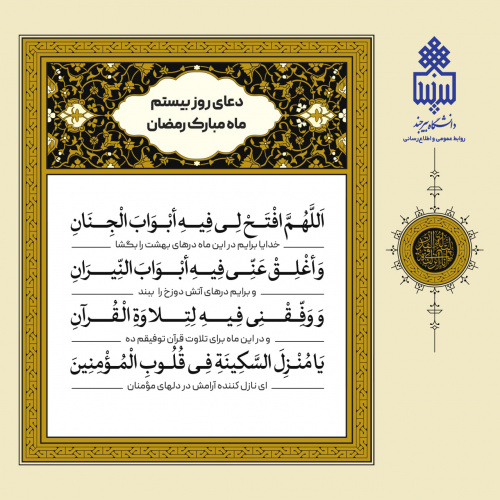 دعای روز بیستم
ماه مبارک رمضان
اَللَّهُمَّ افْتَحْ لِی فِیهِ أَبْوَابَ الْجِنَانِ
خدایا برایم در این ماه درهای بهشت را بگشا
وَ أَغْلِقْ عَنِّی فِیهِ أَبْوَابَ النِّیرَانِ
و برایم درهای آتش دوزخ را ببند
وَ وَفِّقْنِی فِیهِ لِتِلاوَةِ الْقُرْآنِ
و در این ماه برای تلاوت قرآن توفیقم ده
یَا مُنْزِلَ السَّکِینَةِ فِی قُلُوبِ الْمُؤْمِنِینَ
ای نازل کننده آرامش در دلهای مؤمنان
دانشگاه بیرجند
روابط عمومی و اطلاع‌رسانی